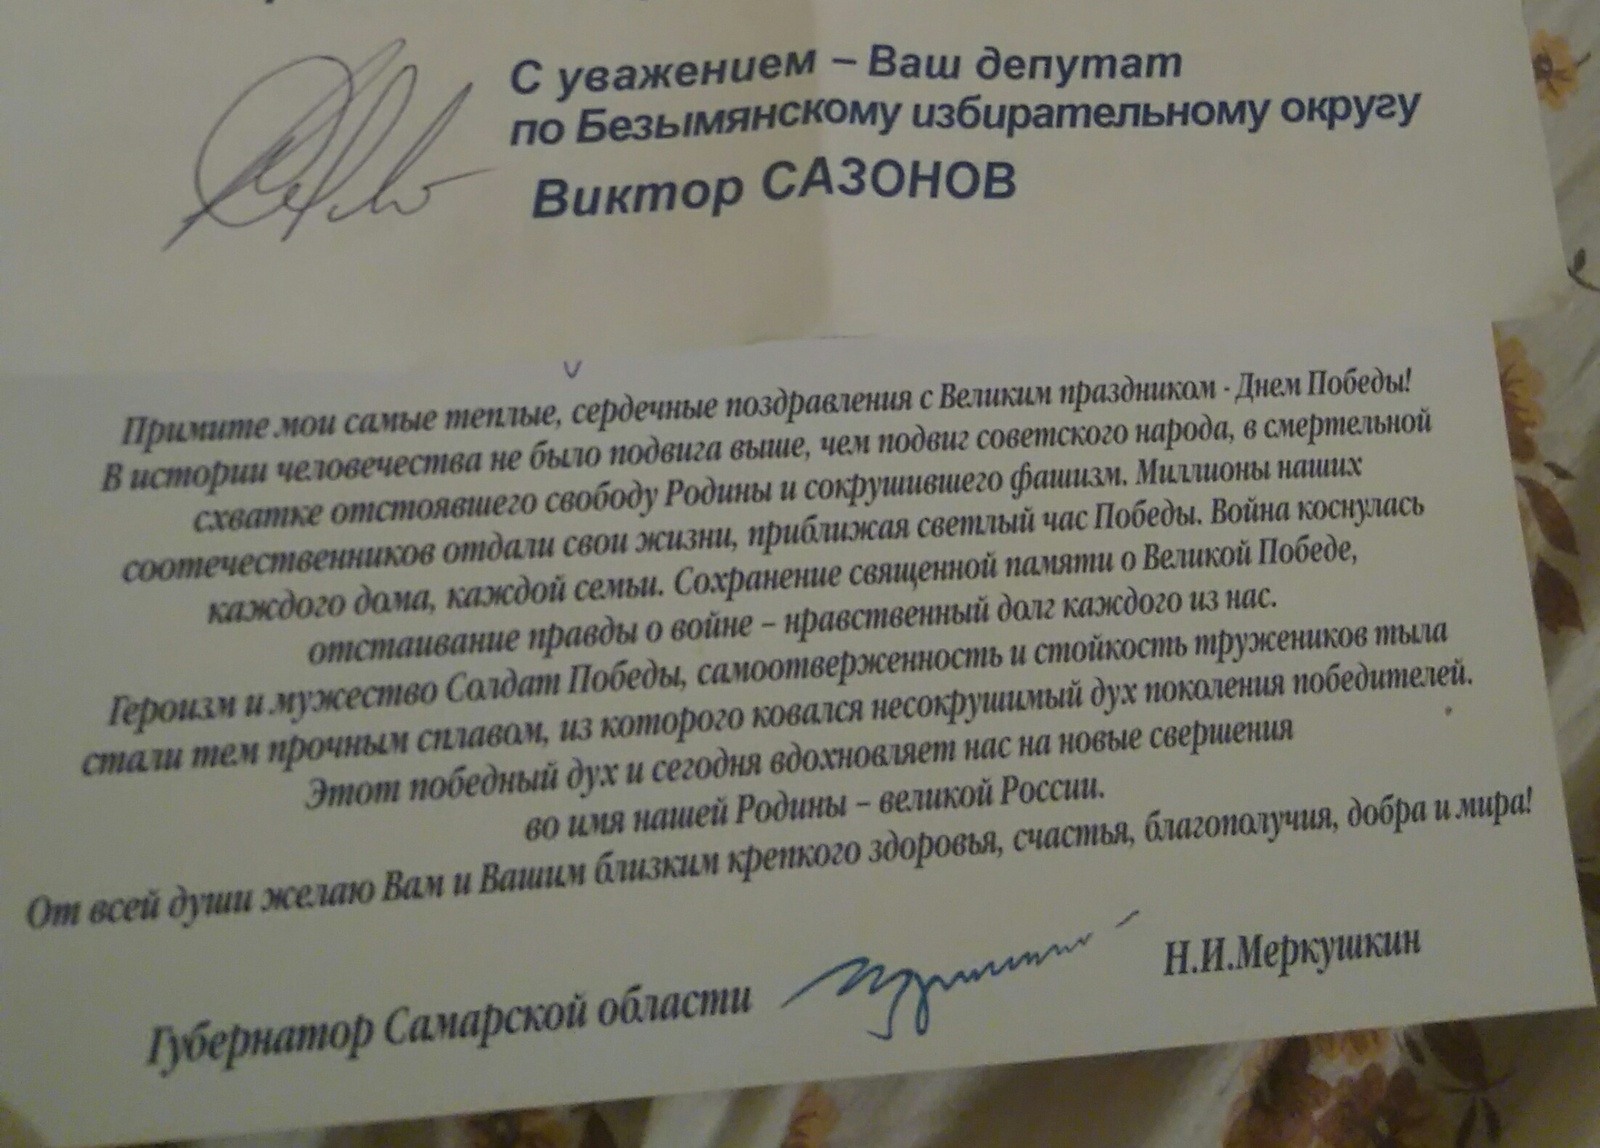 С уважением – Ваш депутат
по Безымянскому избирательному округу
Виктор САЗОНОВ
Примите мои самые теплые, сердечные поздравления с Великим праздником - Днем Победы!
В истории человечества не было подвига выше, чем подвиг советского народа, в смертельной
схватке отстоявшего свободу Родины и сокрушившего фашизм. Миллионы наших
соотечественников отдали свои жизни, приближая светлый час Победы. Война коснулась
каждого дома, каждой семьи. Сохранение священной памяти о Великой Победе,
отстаивание правды о войне – нравственный долг каждого из нас.
Героизм и мужество Солдат Победы, самоотверженность и стойкость тружеников тыла
стали тем прочным сплавом, из которого ковался несокрушимый дух поколения победителей.
Этот победный дух и сегодня вдохновляет нас на новые свершения
во имя нашей Родины – великой России.
От всей души желаю Вам и Вашим близким крепкого здоровья, счастья, благополучия, добра и мира!
Губернатор Самарской области
Н.И.Меркушкин